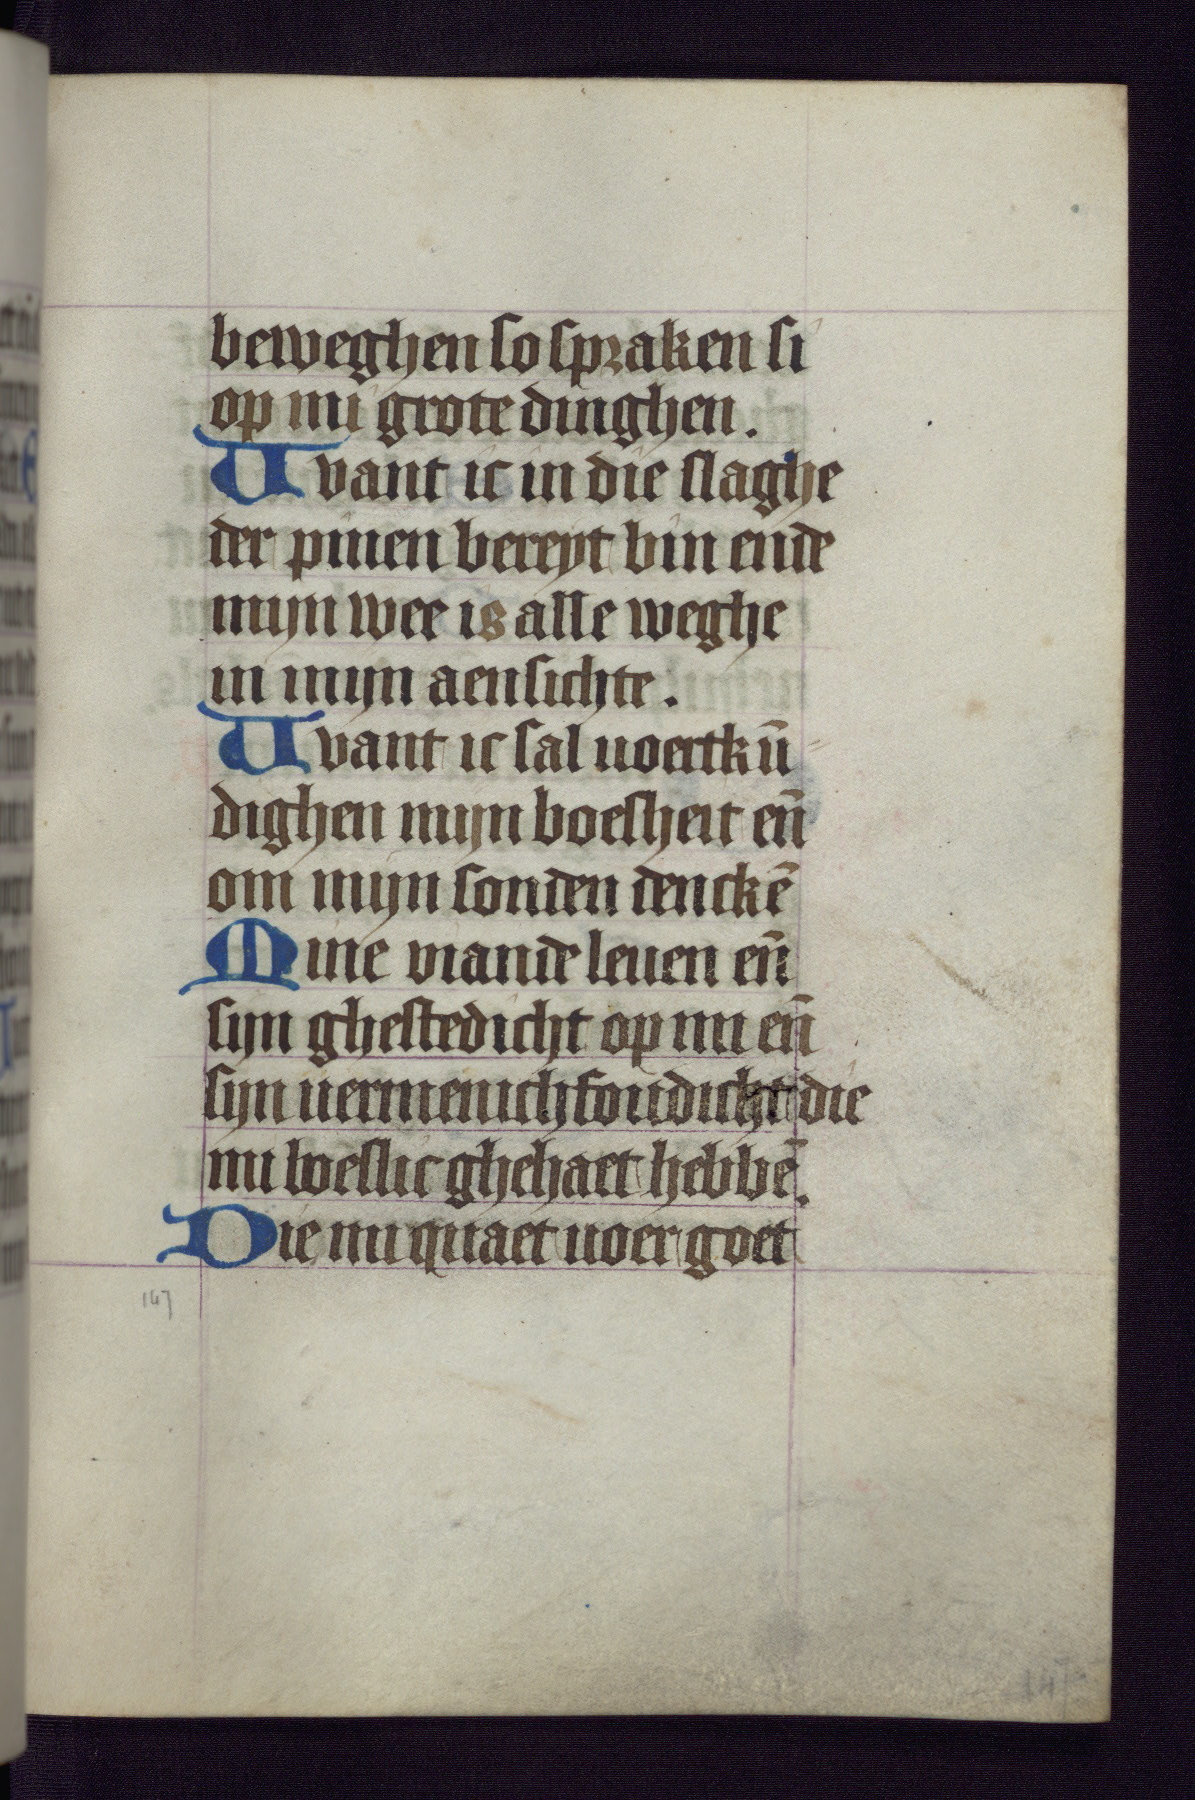 beweghen so spraken si
op mi grote dinghen.
Uvant ic in die slaghe
der pinen bereyt bin ende
mijn wee is alle weghe
in mijn aensichte.
Uvant ic sal uoertkū
dighen mijn boesheit en̄
om mijn sonden denckē
Mine viande leuen en̄
sijn ghestedicht op mi en̄
sijn uermenichfoudicht die
mi boeslic ghehaet hebbē.
Die mi quaet uoer goet
147
147